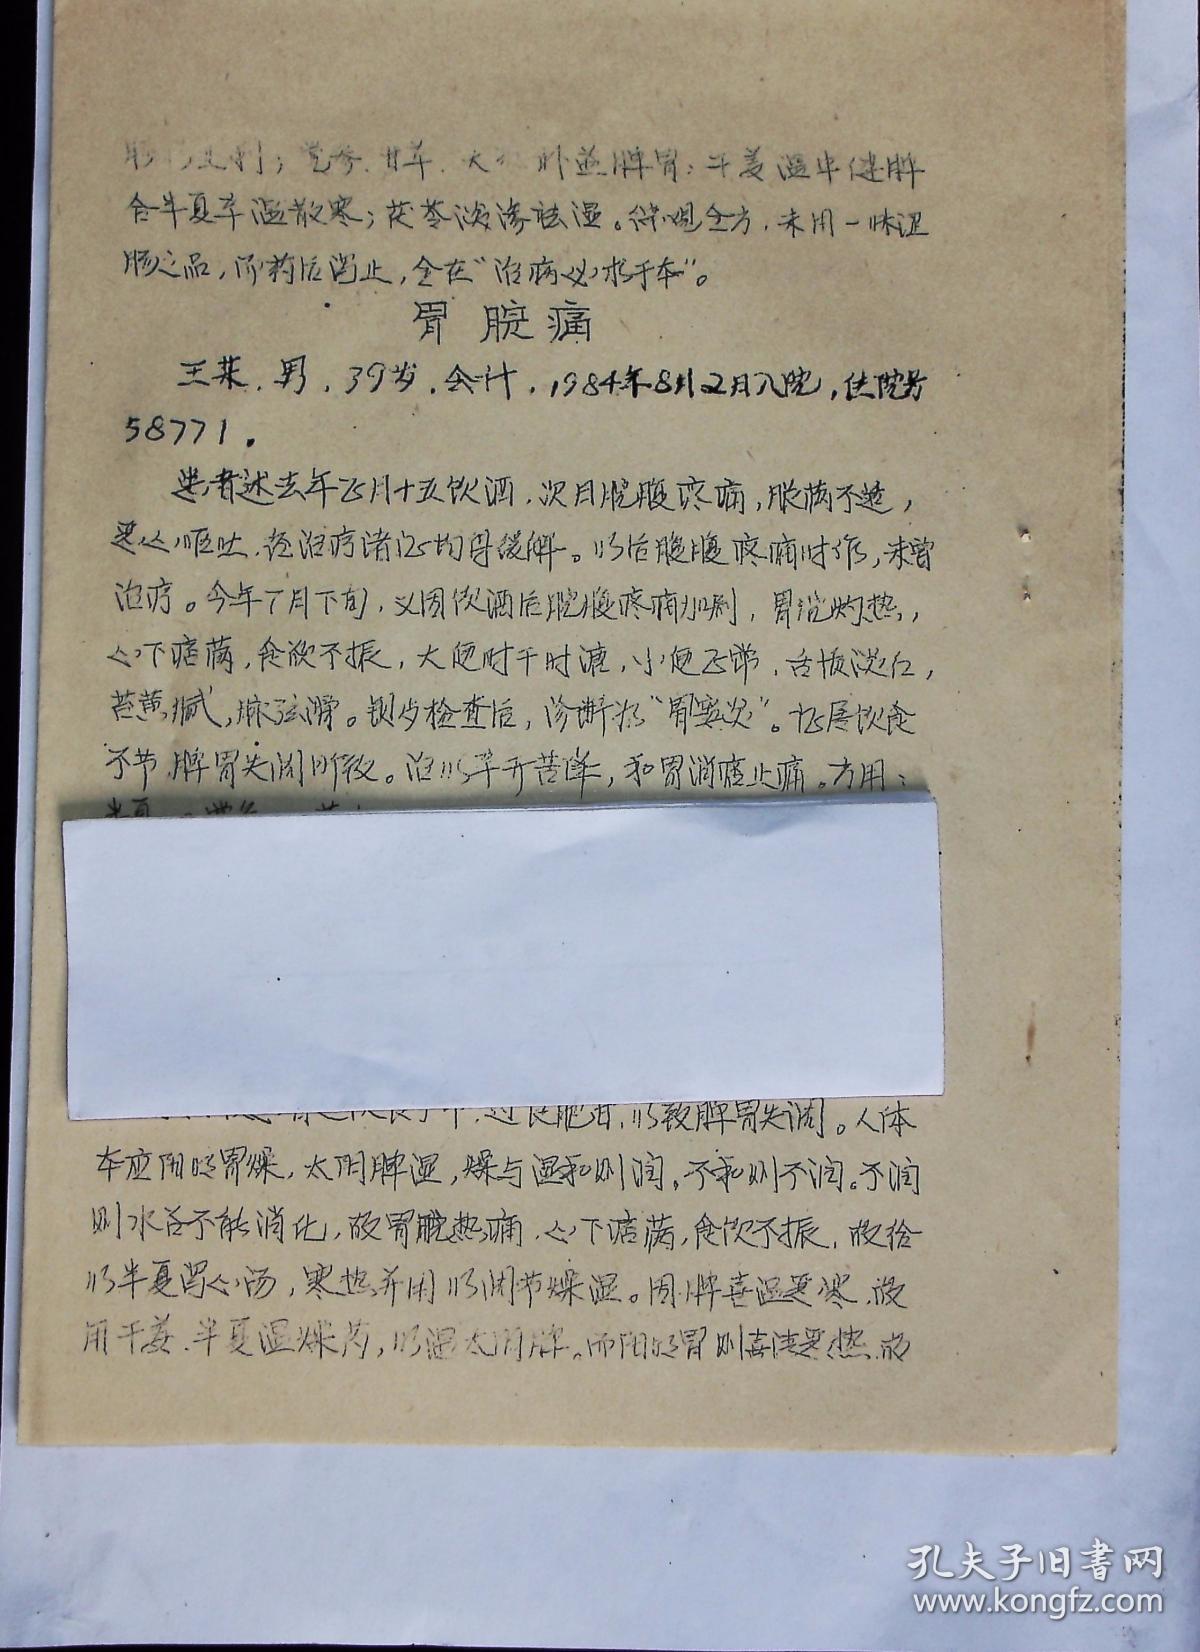 党参、甘草、大 补益脾胃；干姜温中健脾
合半夏辛温散寒；茯苓淡渗祛湿。纵观全方，未用一味涩
肠之品，而药后泻止，全在“治病必求于本”。
胃脘痛
王某，男，39岁，会计，1984年8月2日入院，住院号
58771。
患者述去年 月十五饮酒，次日脘腹疼痛，胀满不适，
恶心呕吐，经治疗诸 均得缓解。以后脘腹疼痛时作，未曾
治疗。今年7月下旬，又因饮酒后脘腹疼痛加剧，胃脘灼热，
心下痞满，食欲不振，大便时干时溏，小便正常，舌质淡红，
苔黄腻，脉弦滑。钡 检查后，诊断为“胃窦炎”。 属饮食
不节，脾胃失调所致。治以辛开苦降，和胃消痞止痛。方用：
半夏
饮食不节，过食肥甘，以致脾胃失调。人体
本应阳明胃燥，太阴脾湿，燥与湿和则润，不和则不润。不润
则水谷不能消化，故胃脘热痛，心下痞满，食饮不振，故给
以半夏泻心汤，寒热并用以调节燥湿。因脾喜温恶寒，故
用干姜、半夏温燥药，以温太阴脾。而阳明胃则喜清恶热，故
孔夫子旧书网
www.kongfz.com